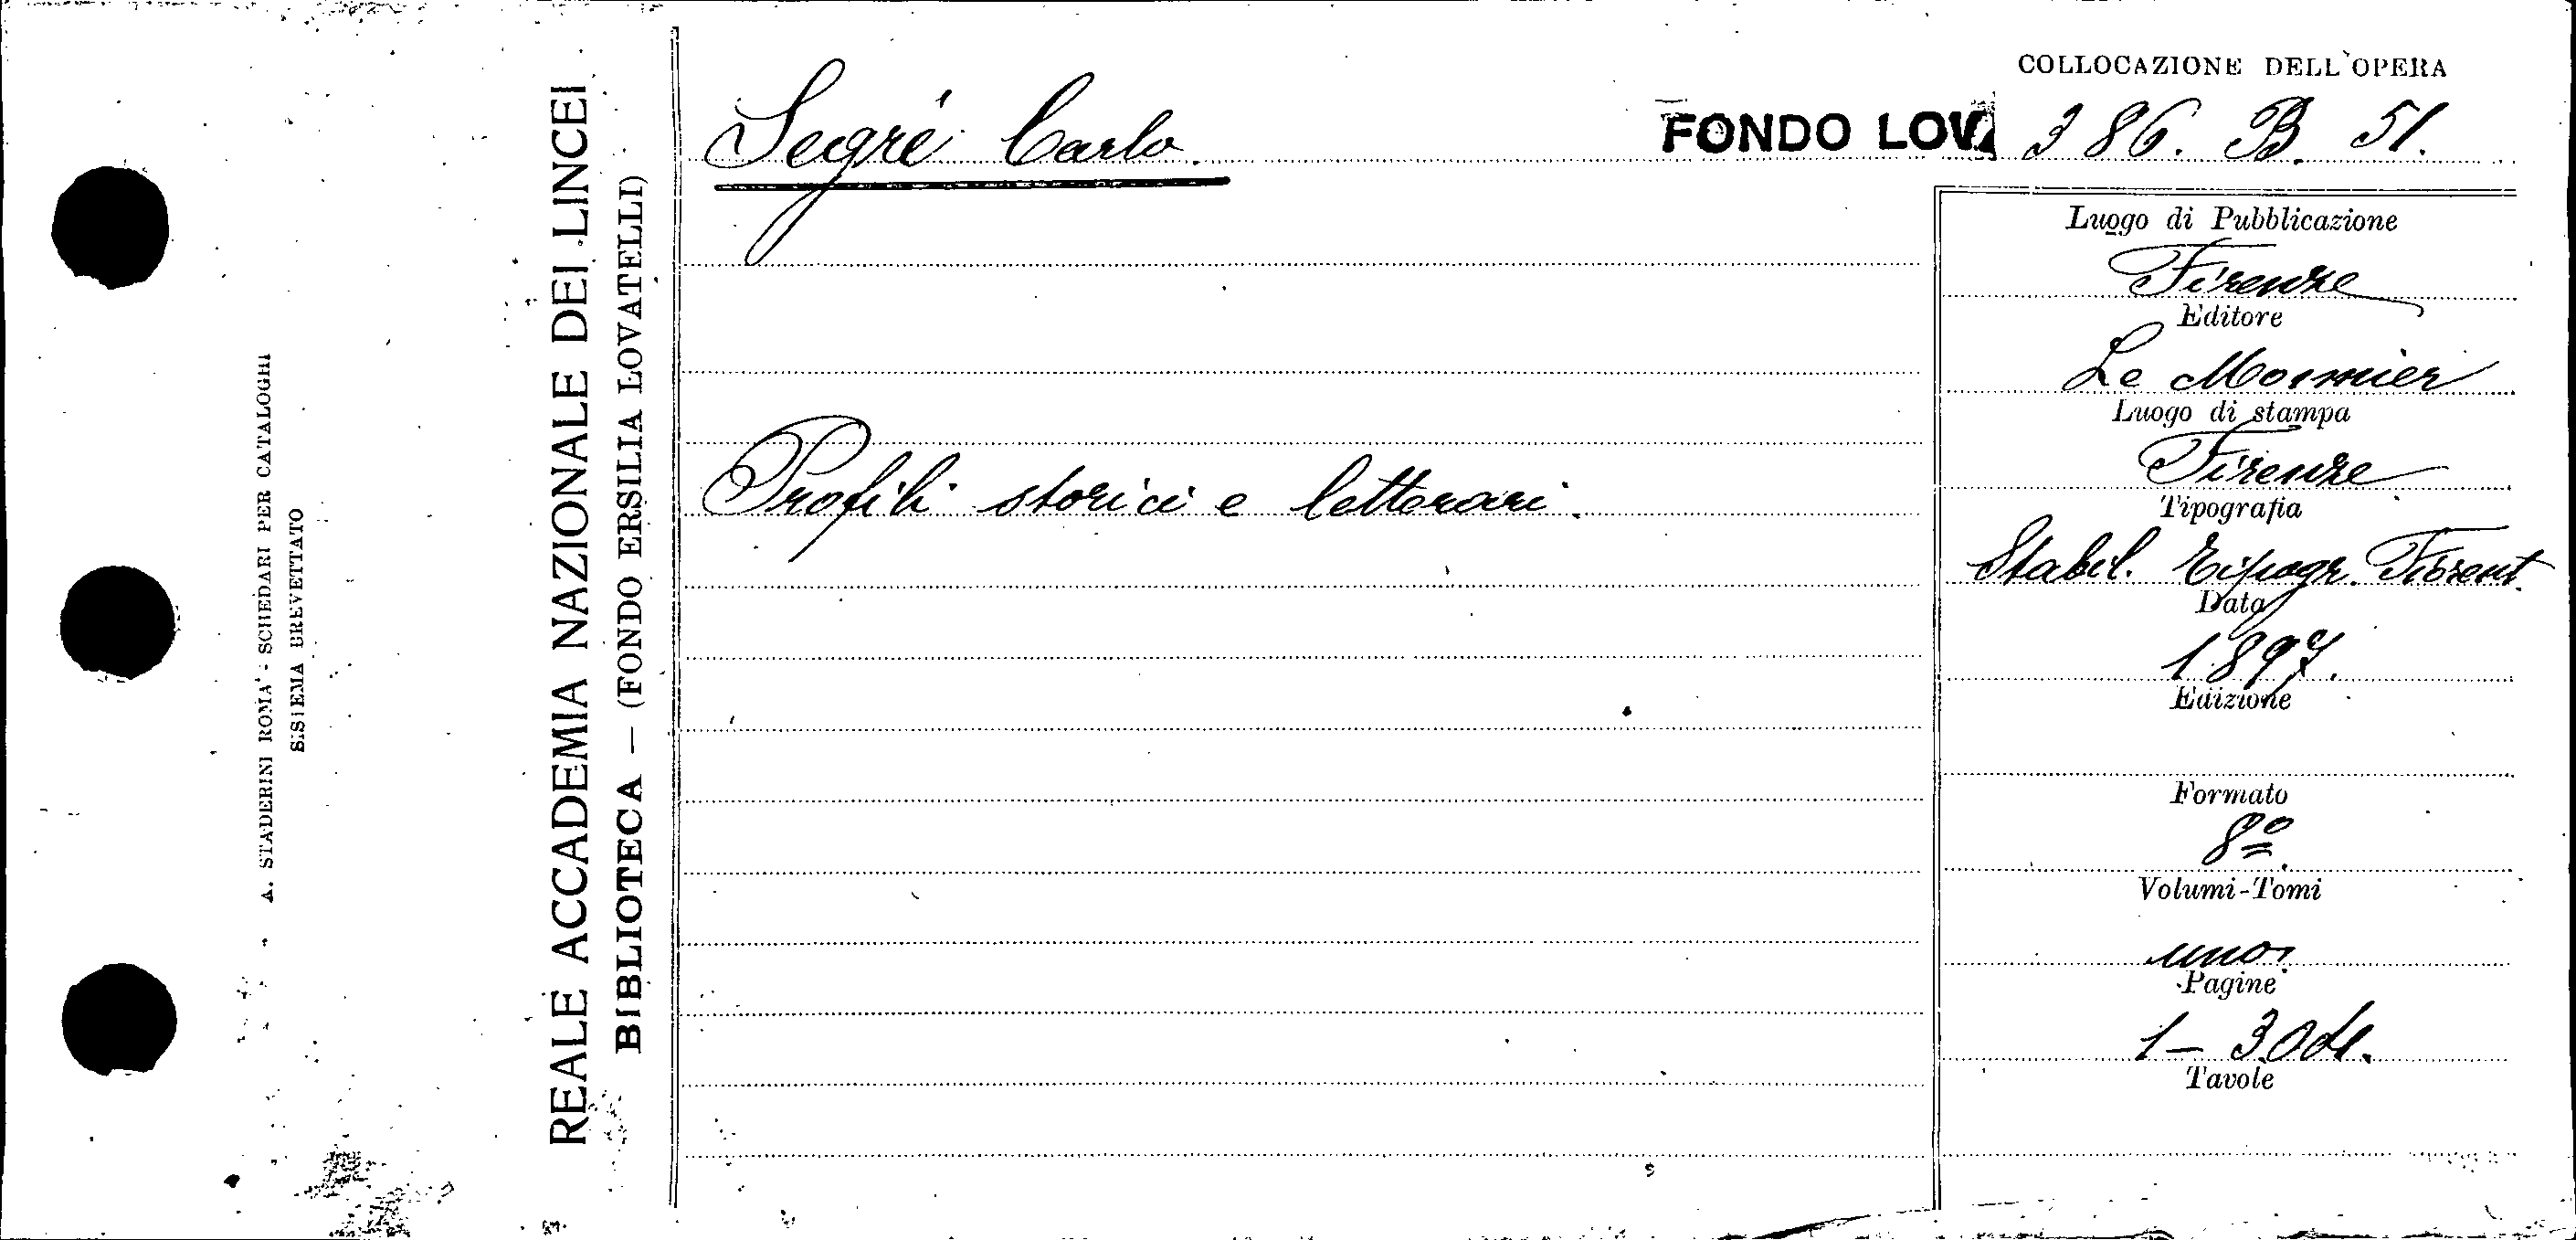 A. STADERINI ROMA - SCHEDARI PER CATALOGHI
SISTEMA BREVETTATO
REALE ACCADEMIA NAZIONALE DEI LINCEI
BIBLIOTECA — (FONDO ERSILIA LOVATELLI)
COLLOCAZIONE DELL'OPERA
FONDO LOV. 386. B. 51.
Segré Carlo.
Profili storici e letterari.
Luogo di Pubblicazione
Firenze
Editore
Le Monnier
Luogo di stampa
Firenze
Tipografia
Stabil. Tipogr. Fiorent.
Data
1897.
Edizione
Formato
8º
Volumi-Tomi
uno.
Pagine
Tavole